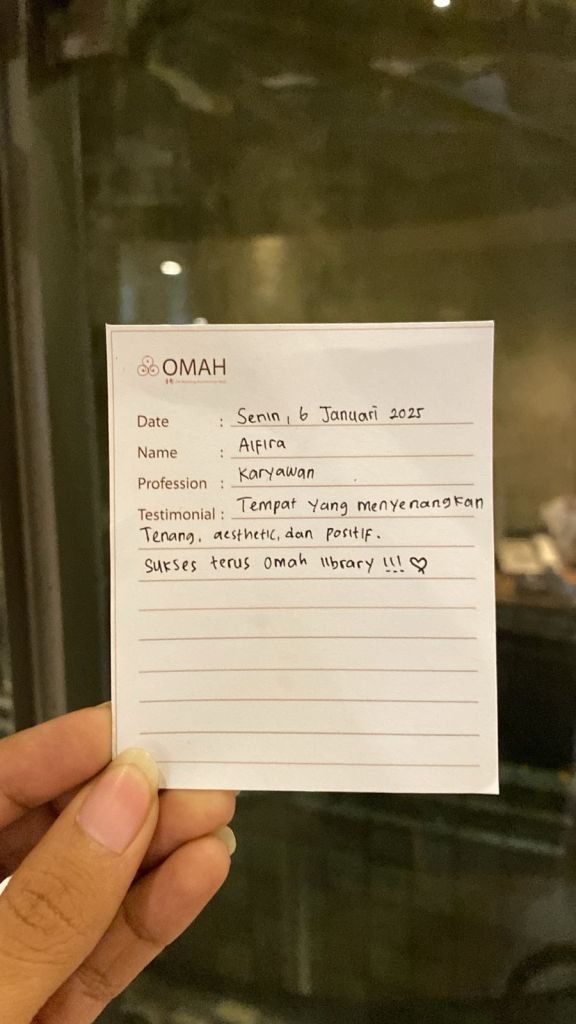 OMAH
Date : Senin, 6 Januari 2025
Name : Alfira
Profession : Karyawan
Testimonial : Tempat yang menyenangkan
Tenang, aesthetic, dan positif.
Sukses terus omah library !!! ♡